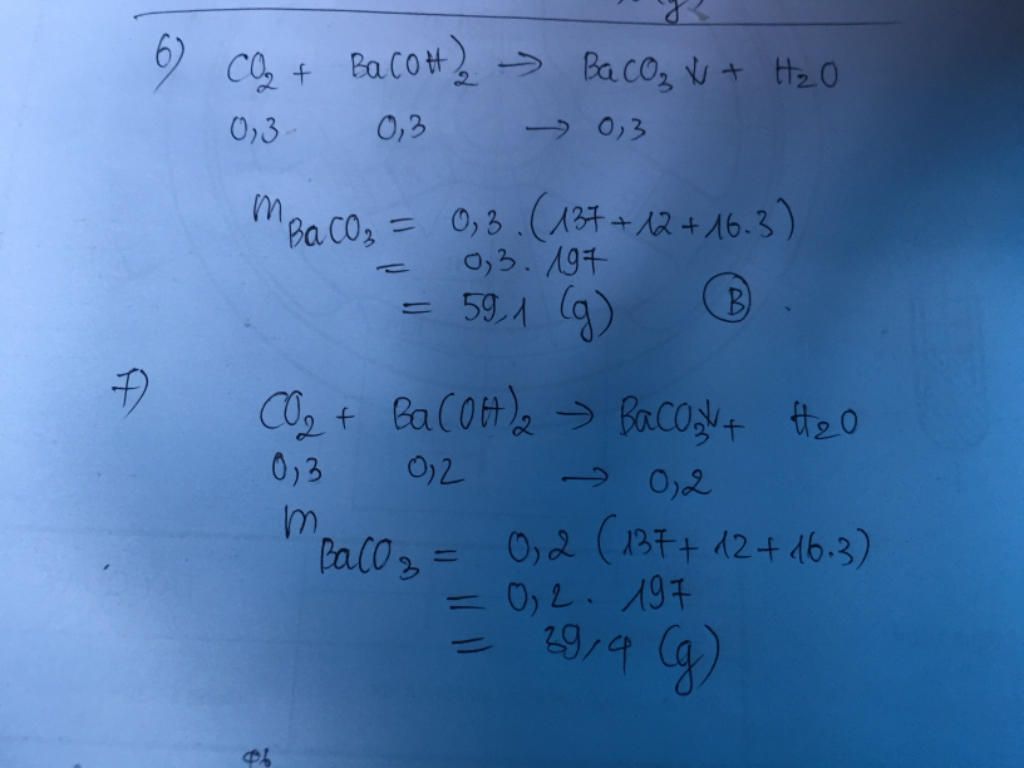 6) CO₂ + Ba(OH)₂ → BaCO₃ ↓ + H₂O
0,3 0,3 → 0,3
m BaCO₃ = 0,3 . (137 + 12 + 16.3)
= 0,3 . 197
= 59,1 (g) B .
7)
CO₂ + Ba(OH)₂ → BaCO₃↓ + H₂O
0,3 0,2 → 0,2
m BaCO₃ = 0,2 (137 + 12 + 16.3)
= 0,2 . 197
= 39,4 (g)